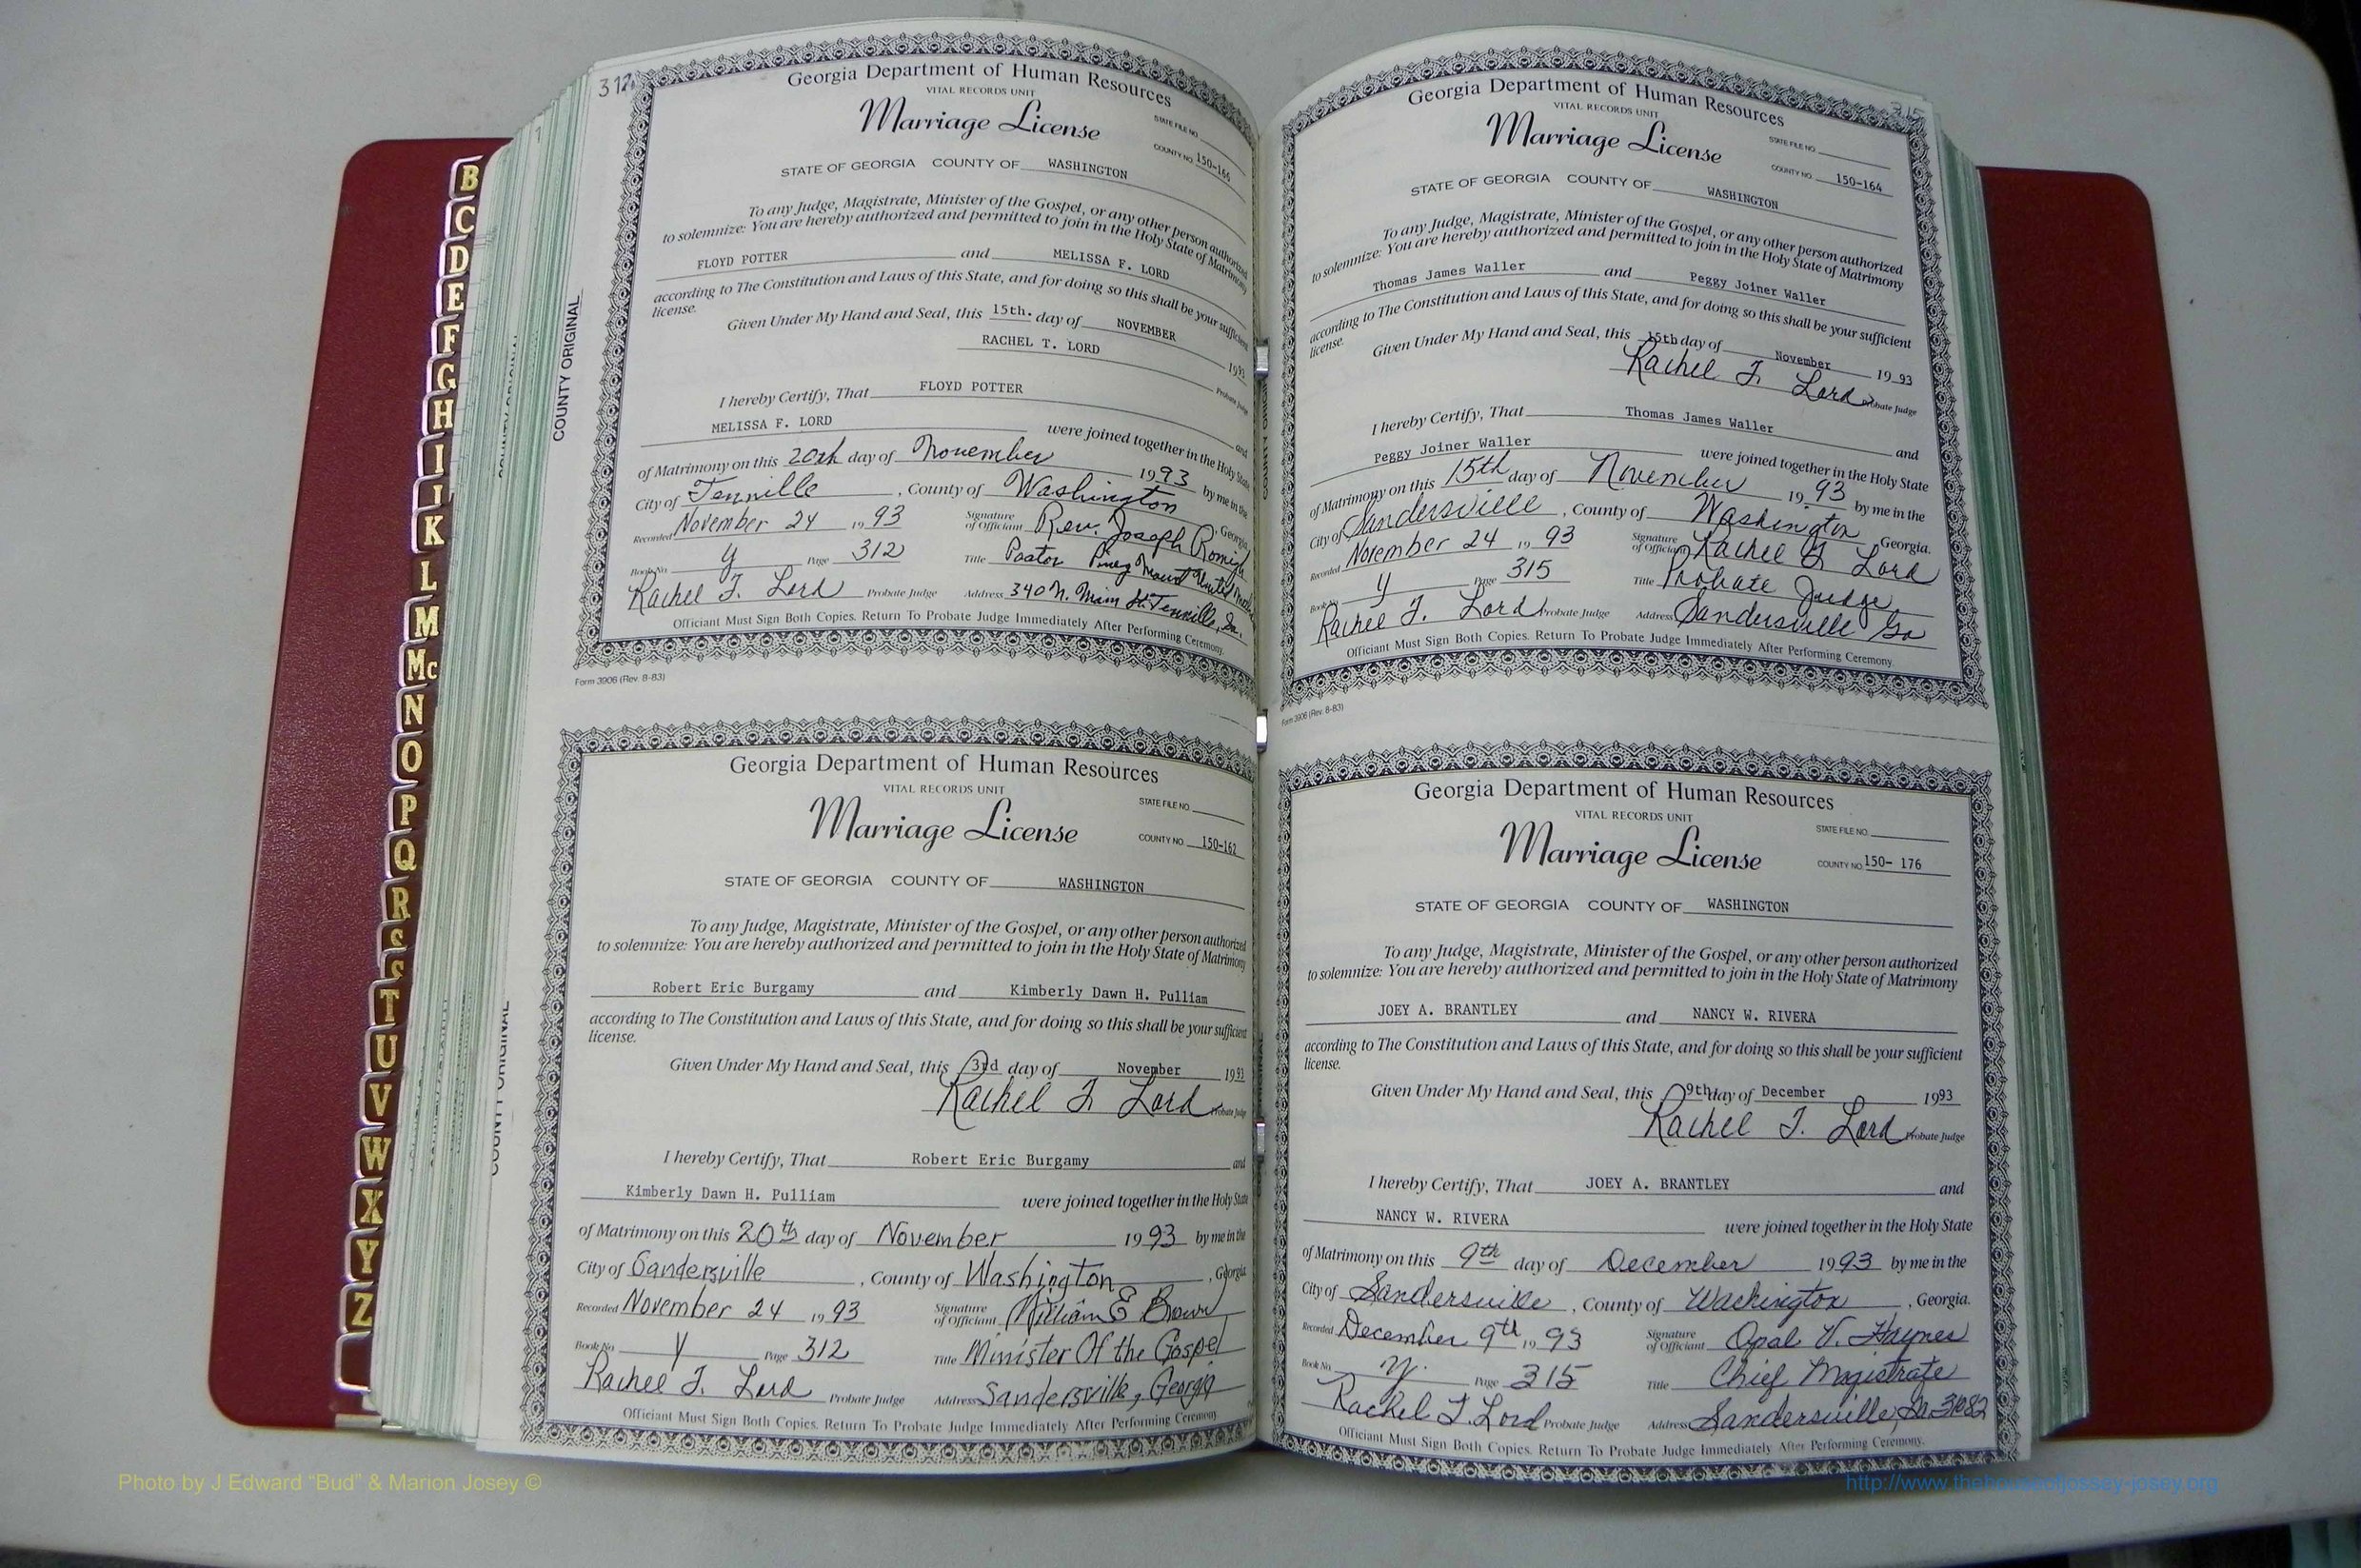 B
C
D
E
F
G
H
I
J
K
L
M
Mc
N
O
P
Q
R
S
T
U
V
W
X
Y
Z
COUNTY ORIGINAL
COUNTY ORIGINAL
312
Georgia Department of Human Resources
VITAL RECORDS UNIT
Marriage License
STATE FILE NO.
COUNTY NO. 150-166
STATE OF GEORGIA COUNTY OF WASHINGTON
To any Judge, Magistrate, Minister of the Gospel, or any other person authorized
to solemnize: You are hereby authorized and permitted to join in the Holy State of Matrimony
FLOYD POTTER and MELISSA F. LORD
according to The Constitution and Laws of this State, and for doing so this shall be your sufficient
license.
Given Under My Hand and Seal, this 15th. day of NOVEMBER 1993
RACHEL T. LORD Probate Judge
I hereby Certify, That FLOYD POTTER and
MELISSA F. LORD were joined together in the Holy State
of Matrimony on this 20th day of November 1993 by me in the
City of Tennille, County of Washington, Georgia
Recorded November 24 1993 Signature of Officiant Rev. Joseph Romigh
Book No. Y Page 312 Title Pastor Piney Mount United
Rachel T. Lord Probate Judge Address 340 N. Main St. Tennille, Ga.
Officiant Must Sign Both Copies. Return To Probate Judge Immediately After Performing Ceremony.
Form 3906 (Rev. 8-83)
Georgia Department of Human Resources
VITAL RECORDS UNIT
Marriage License
STATE FILE NO.
COUNTY NO. 150-162
STATE OF GEORGIA COUNTY OF WASHINGTON
To any Judge, Magistrate, Minister of the Gospel, or any other person authorized
to solemnize: You are hereby authorized and permitted to join in the Holy State of Matrimony
Robert Eric Burgamy and Kimberly Dawn H. Pulliam
according to The Constitution and Laws of this State, and for doing so this shall be your sufficient
license.
Given Under My Hand and Seal, this 3rd day of November 1993
Rachel T. Lord Probate Judge
I hereby Certify, That Robert Eric Burgamy and
Kimberly Dawn H. Pulliam were joined together in the Holy State
of Matrimony on this 20th day of November 1993 by me in the
City of Sandersville, County of Washington, Georgia
Recorded November 24 1993 Signature of Officiant William E Brown
Book No. Y Page 312 Title Minister Of the Gospel
Rachel T. Lord Probate Judge Address Sandersville, Georgia
Officiant Must Sign Both Copies. Return To Probate Judge Immediately After Performing Ceremony
315
Georgia Department of Human Resources
VITAL RECORDS UNIT
Marriage License
STATE FILE NO.
COUNTY NO. 150-164
STATE OF GEORGIA COUNTY OF WASHINGTON
To any Judge, Magistrate, Minister of the Gospel, or any other person authorized
to solemnize: You are hereby authorized and permitted to join in the Holy State of Matrimony
Thomas James Waller and Peggy Joiner Waller
according to The Constitution and Laws of this State, and for doing so this shall be your sufficient
license.
Given Under My Hand and Seal, this 15th day of November 1993
Rachel T. Lord Probate Judge
I hereby Certify, That Thomas James Waller and
Peggy Joiner Waller were joined together in the Holy State
of Matrimony on this 15th day of November 1993 by me in the
City of Sandersville, County of Washington, Georgia.
Recorded November 24 1993 Signature of Officiant Rachel T. Lord
Book No. Y Page 315 Title Probate Judge
Rachel T. Lord Probate Judge Address Sandersville Ga
Officiant Must Sign Both Copies. Return To Probate Judge Immediately After Performing Ceremony.
Form 3906 (Rev. 8-83)
Georgia Department of Human Resources
VITAL RECORDS UNIT
Marriage License
STATE FILE NO.
COUNTY NO. 150- 176
STATE OF GEORGIA COUNTY OF WASHINGTON
To any Judge, Magistrate, Minister of the Gospel, or any other person authorized
to solemnize: You are hereby authorized and permitted to join in the Holy State of Matrimony
JOEY A. BRANTLEY and NANCY W. RIVERA
according to The Constitution and Laws of this State, and for doing so this shall be your sufficient
license.
Given Under My Hand and Seal, this 9th day of December 1993
Rachel T. Lord Probate Judge
I hereby Certify, That JOEY A. BRANTLEY and
NANCY W. RIVERA were joined together in the Holy State
of Matrimony on this 9th day of December 1993 by me in the
City of Sandersville, County of Washington, Georgia.
Recorded December 9th, 1993 Signature of Officiant Opal V. Haynes
Book No. Y. Page 315 Title Chief Magistrate
Rachel T. Lord Probate Judge Address Sandersville, Ga. 31082
Officiant Must Sign Both Copies. Return To Probate Judge Immediately After Performing Ceremony.
Photo by J Edward “Bud” & Marion Josey ©
http://www.thehouseofjossey-josey.org